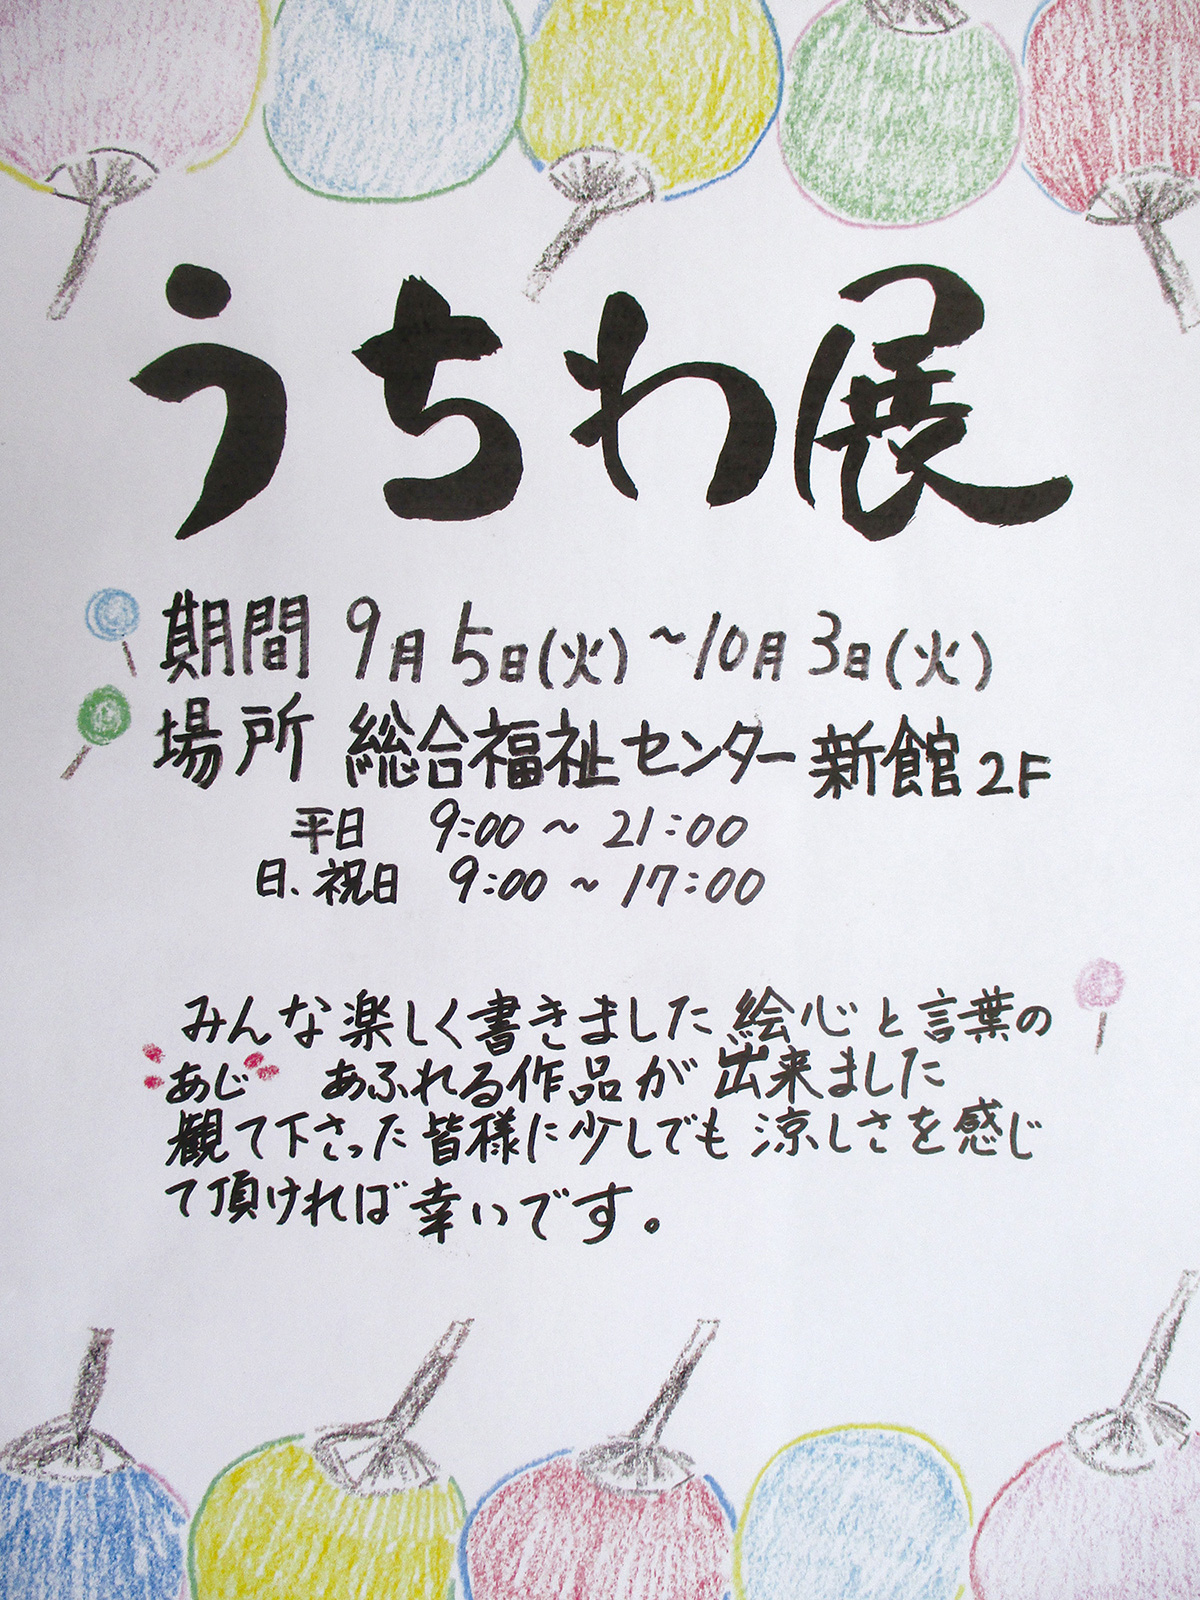 うちわ展
期間 9月5日(火)~10月3日(火)
場所 総合福祉センター新館2F
平日 9:00~21:00
日、祝日 9:00~17:00
みんな楽しく書きました絵心と言葉の
あじ あふれる作品が出来ました
観て下さった皆様に少しでも涼しさを感じ
て頂ければ幸いです。